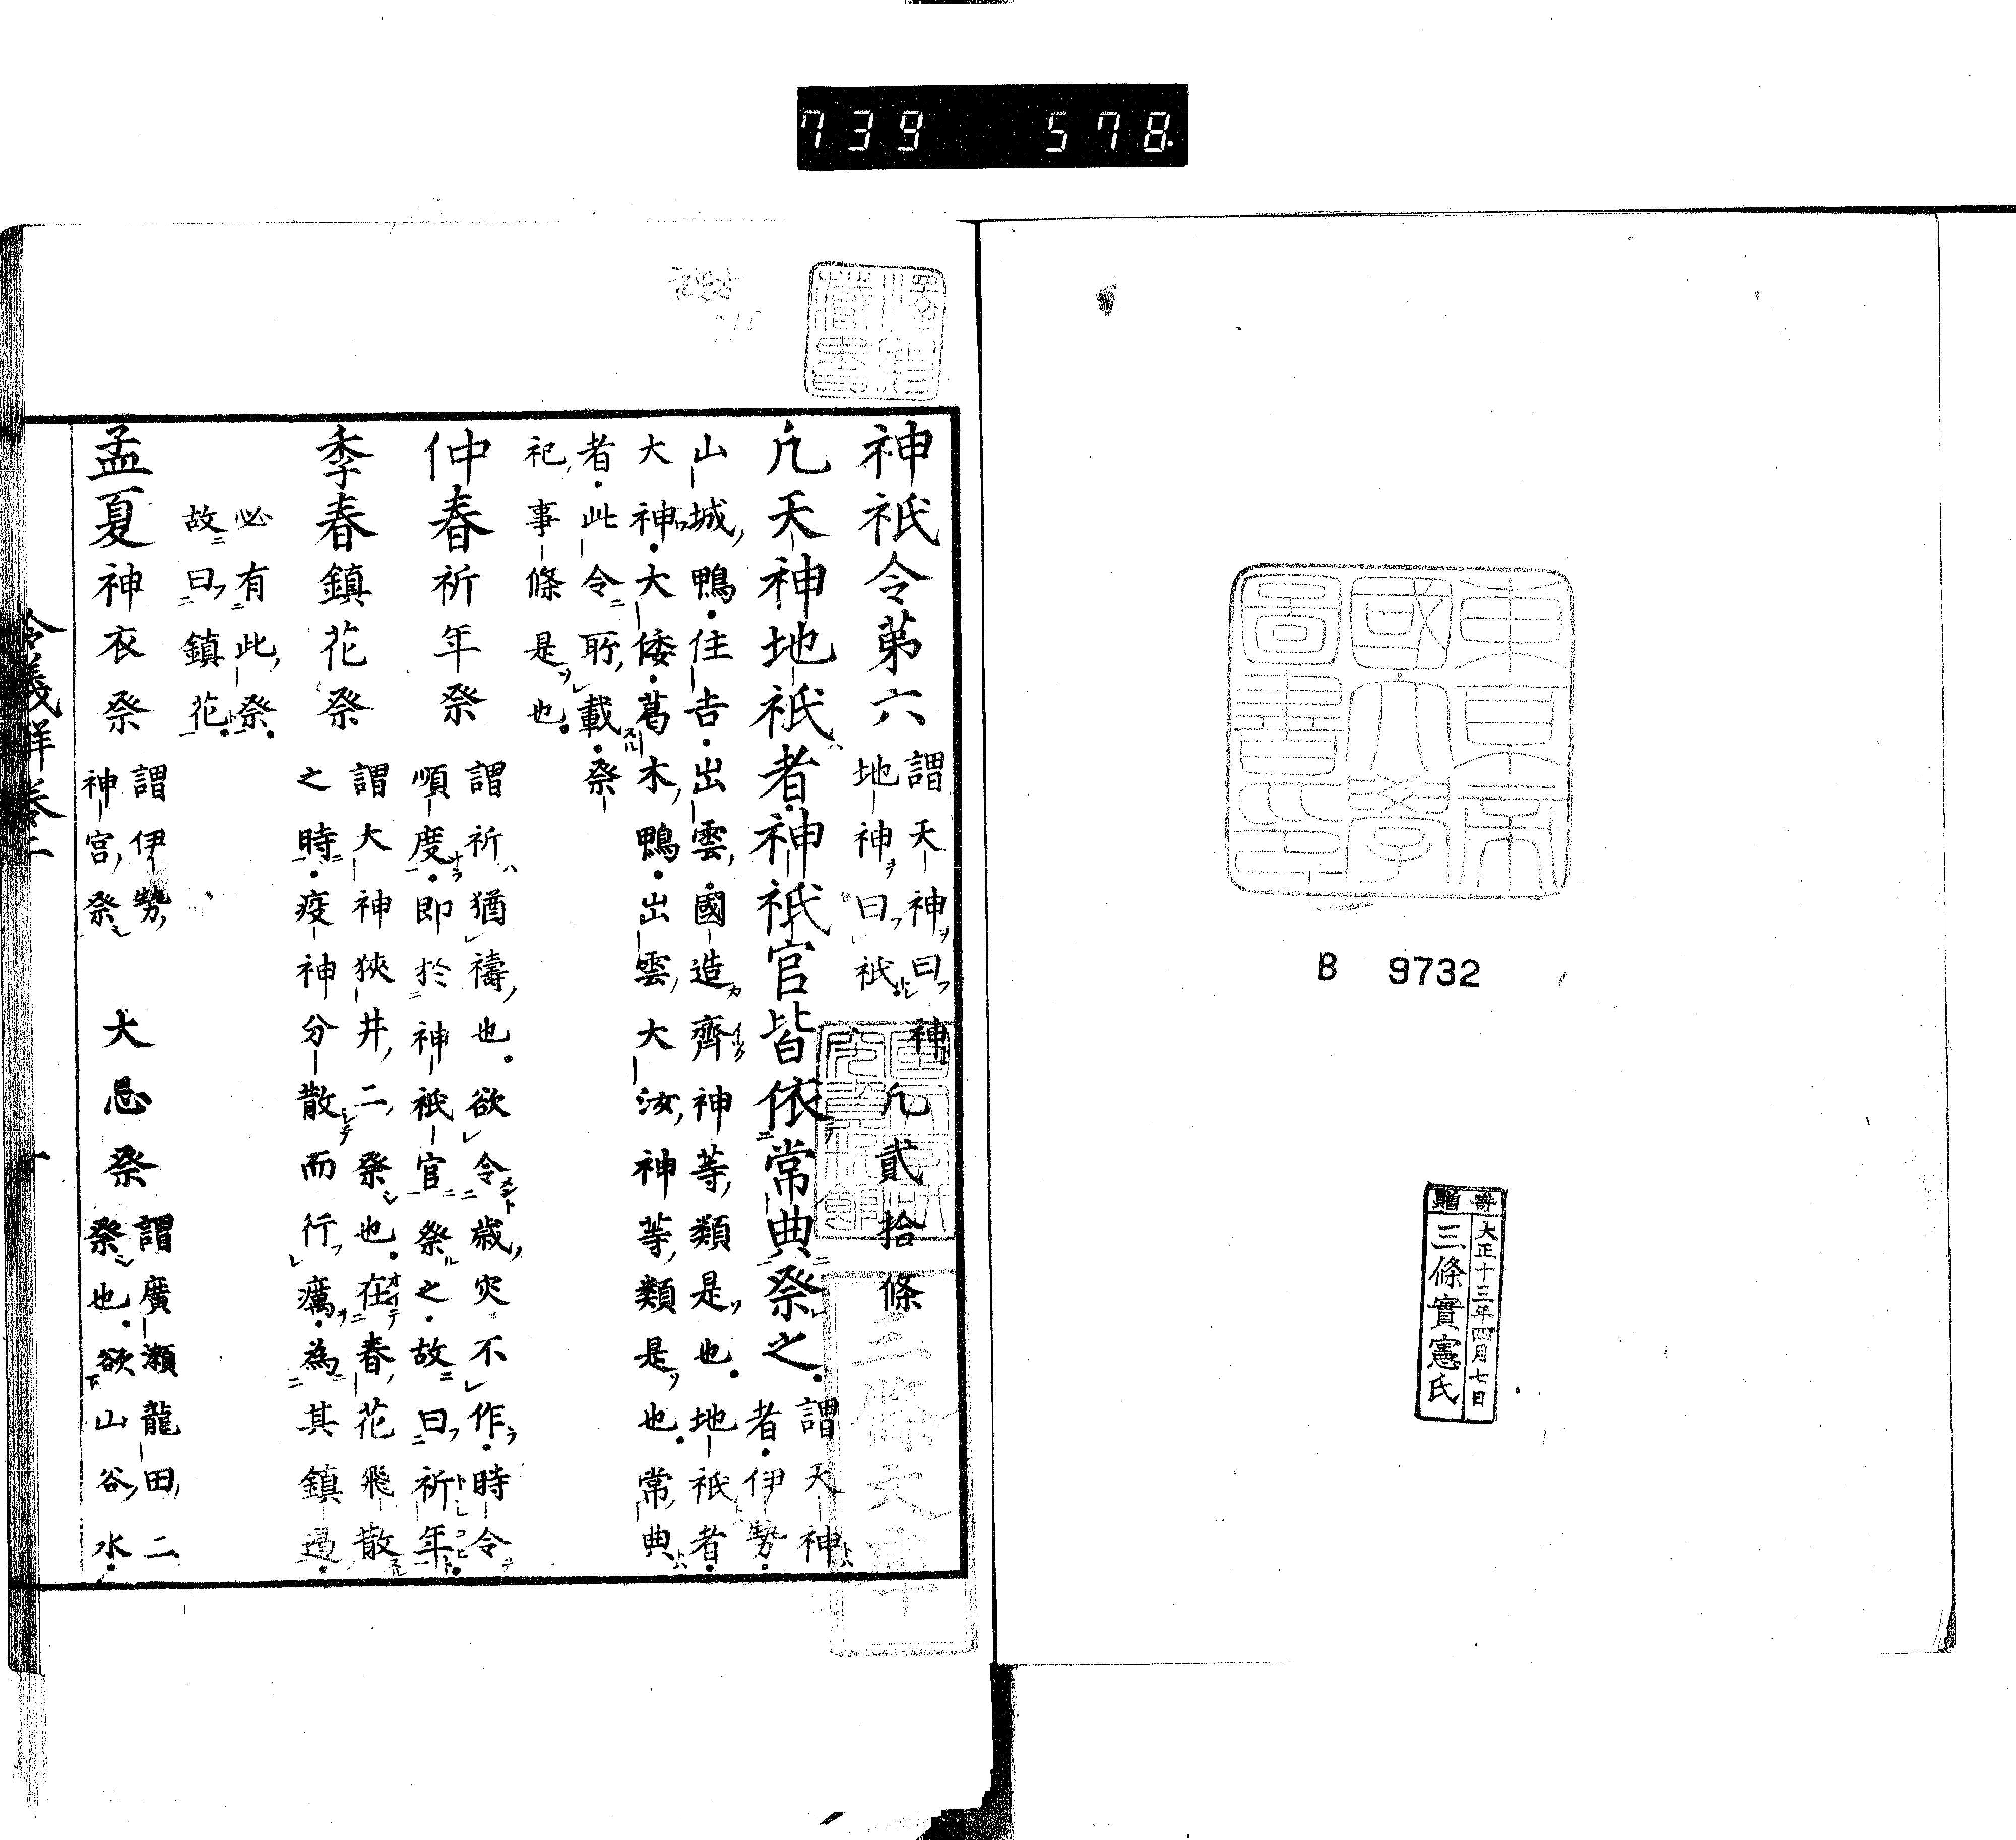 739 578
東京帝
國大學
圖書印
B 9732
寄贈
大正十三年四月七日
三條實憲氏
神祇令第六 謂天神曰神
地神曰祇 凡貳拾條
凡天神地祇者神祇官皆依常典祭之 謂天神
者伊勢
山城鴨住吉出雲國造齊神等類是也地祇者
大神大倭葛木鴨出雲大汝神等類是也常典
者此令所載祭
祀事條是也
仲春祈年祭 謂祈猶禱也欲令歳灾不作時令
順度即於神祇官祭之故曰祈年
季春鎮花祭 謂大神狹井二祭也在春花飛散
之時疫神分散而行癘為其鎮遏
必有此祭
故曰鎮花
孟夏神衣祭 謂伊勢
神宮祭 大忌祭 謂廣瀬龍田二
祭也欲山谷水